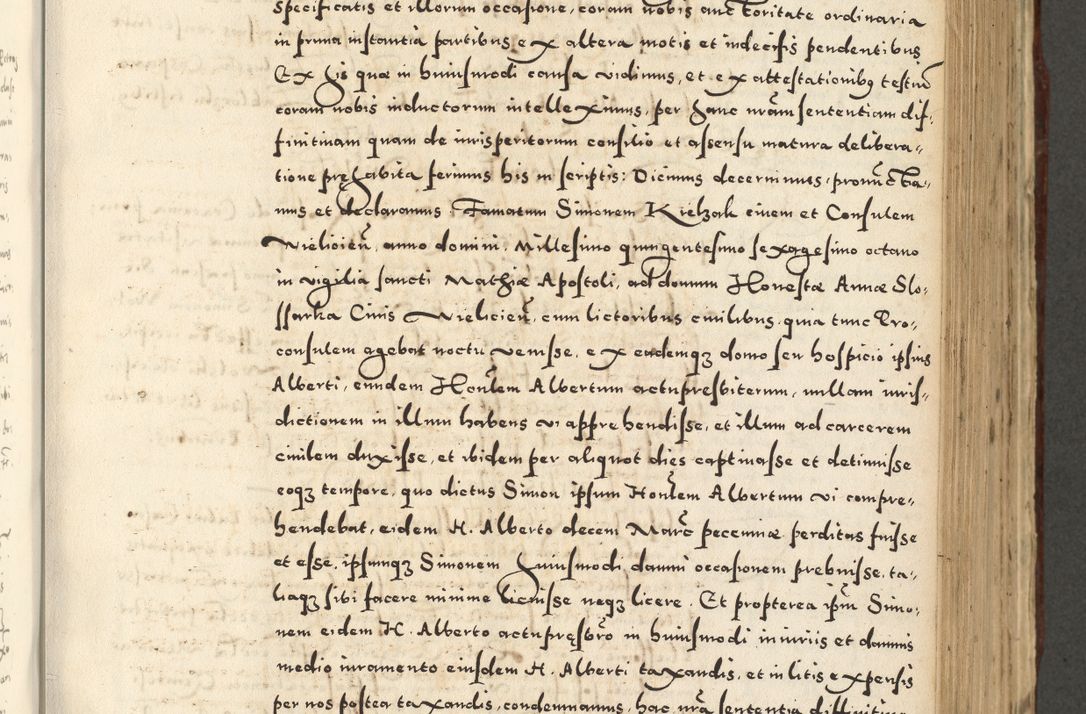 specificatis et illorum occasione, coram nobis auctoritate ordinaria
in prima instantia partibus ex altera motis et indecisis pendentibus
Et ex his quæ in huiusmodi causa vidimus, et ex attestationibq testiū
coram nobis inductorum intelleximus, per hanc nrām sententiam dif-
finitivam quam de iurisperitorum consilio et assensu matura delibera-
tione pręhabita ferimus his in scriptis: Dicimus decernimus, pronūctia-
mus et declaramus, Famatum Simonem Kielzak civem et Consulem
Wielicieñ, anno domini, Millesimo quingentesimo sexagesimo octavo
in vigilia sancti Mathiæ Apostoli, ad domum Honestæ Annæ Slo-
ssarka Civis Wielicieñ, cum lictoribus civilibus, quia tunc Pro-
consulem agebat noctu venisse, ex eademqz domo seu hospicio ipsius
Alberti, eundem Honlem Albertum actupresbiterum, nullam iuris-
dictionem in illum habens vi apprehendisse, et illum ad carcerem
civilem duxisse, et ibidem per aliquot dies captivasse et detinuisse
eoqz tempore, quo dictus Simon ipsum Honlem Albertum vi compre-
hendebat, eidem H. Alberto decem Marc̄ pecuniæ perditas fuisse
et esse, ipsumqz Simonem huiusmodi damni occasionem prebuisse, ta-
liaqz sibi facere minime licuisse neqz licere. Et propterea ipm̄ Simo-
nem eidem H. Alberto actupręsbro in huiusmodi iniuriis et damnis
medio iuramento eiusdem H. Alberti taxandis, et in litis expensis
per nos postea taxandis, condemnamus, hac nrā sententia diffinitiva